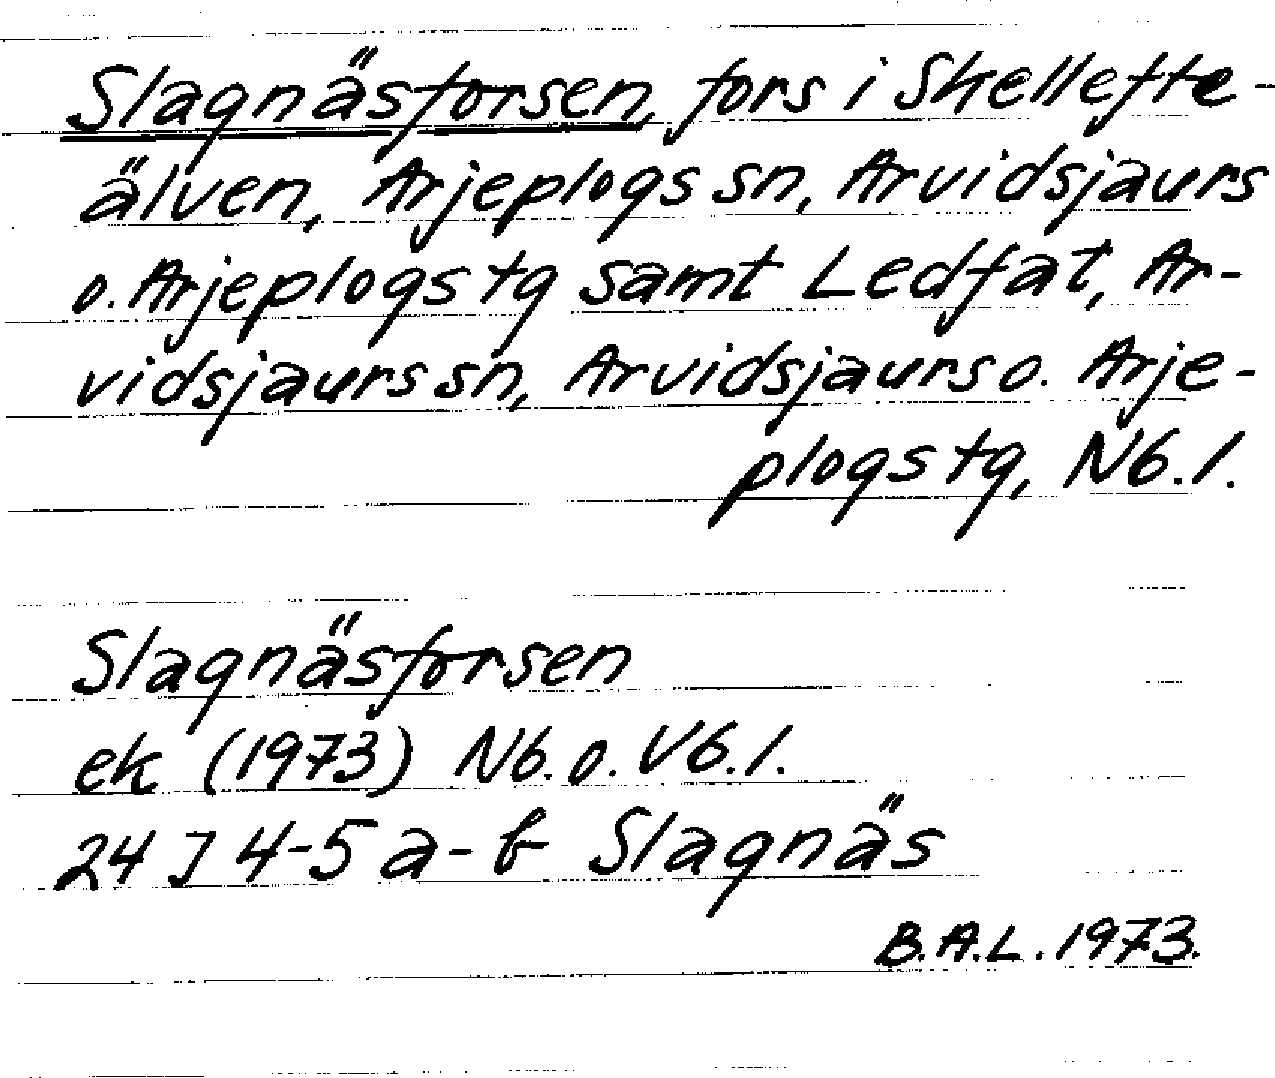 Slagnäsforsen, fors i Skellefte-
älven, Arjeplogs sn, Arvidsjaurs
o. Arjeplogs tg samt Ledfat, Ar-
vidsjaurs sn, Arvidsjaurs o. Arje-
plogs tg, Nb.l.
Slagnäsforsen
ek (1973) Nb. o. Vb.l.
24 J 4-5 a-b Slagnäs
B.A.L. 1973.